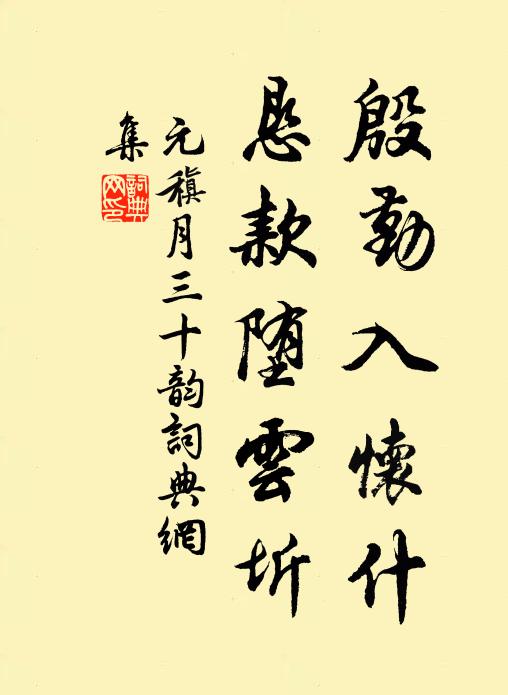 殷勤入懷什
恳款堕雲圻
元稹月三十韵詞典網
集
詞典
网印